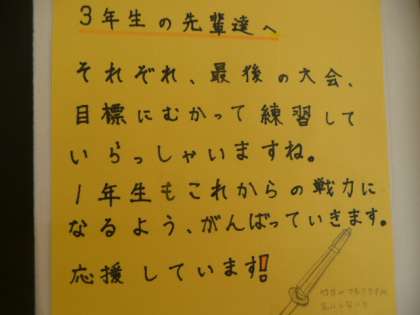 3年生の先輩達へ
それぞれ、最後の大会、
目標にむかって練習して
いらっしゃいますね。
1年生もこれからの戦力に
なるよう、がんばっていきます。
応援しています!